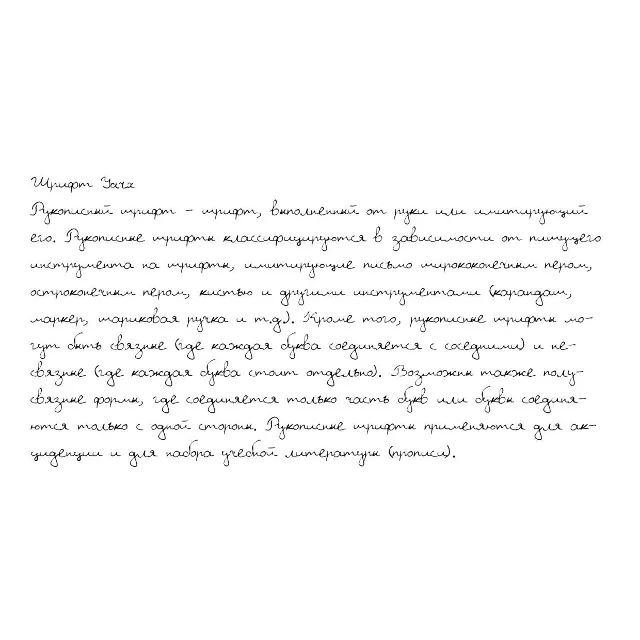 Шрифт Уагх
Рукописный шрифт – шрифт, выполненный от руки или имитирующий
его. Рукописные шрифты классифицируются в зависимости от пишущего
инструмента на шрифты, имитирующие письмо ширококонечным пером,
остроконечным пером, кистью и другими инструментами (карандаш,
маркер, шариковая ручка и т.д.). Кроме того, рукописные шрифты мо-
гут быть связные (где каждая буква соединяется с соседними) и не-
связные (где каждая буква стоит отдельно). Возможны также полу-
связные формы, где соединяется только часть букв или буквы соединя-
ются только с одной стороны. Рукописные шрифты применяются для ак-
циденции и для набора учебной литературы (прописи).